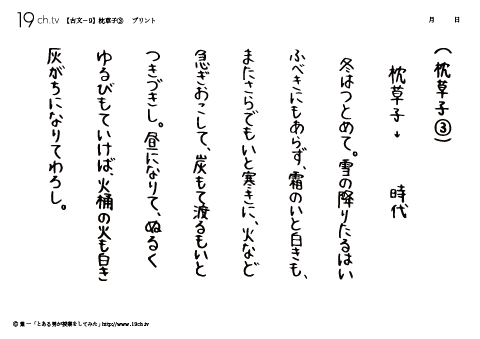 19 ch.tv 【古文－9】枕草子③ プリント
月 日
(枕草子③)
枕草子→ 時代
冬はつとめて。雪の降りたるはい
ふべきにもあらず、霜のいと白きも、
またさらでもいと寒きに、火など
急ぎおこして、炭もて渡るもいと
つきづきし。昼になりて、ぬるく
ゆるびもていけば、火桶の火も白き
灰がちになりてわろし。
© 葉一「とある男が授業をしてみた」http://www.19ch.tv